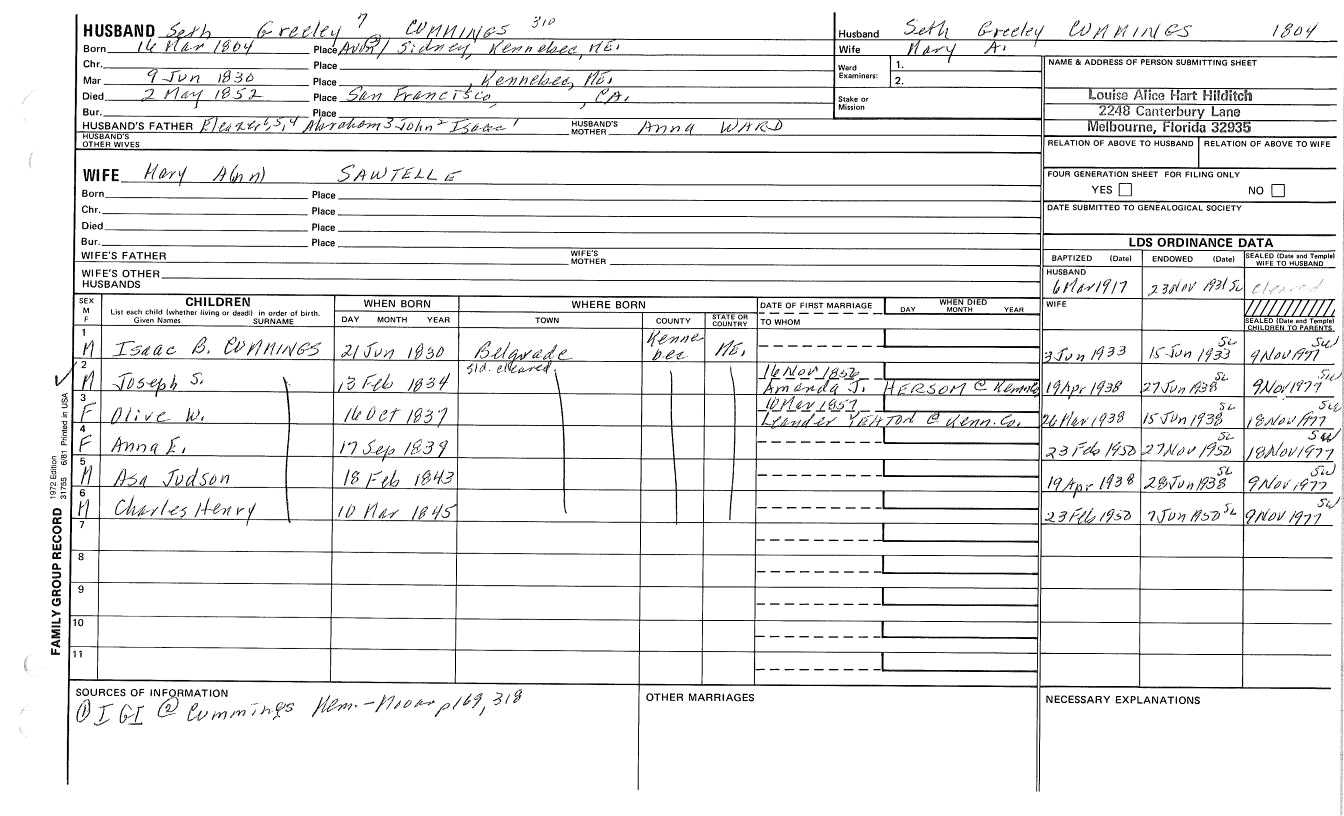 HUSBAND Seth Greeley 7 CUMMINGS 310
Born 16 Mar 1804 Place Sidney, Kennebec, ME.
Chr. Place
Mar 9 Jun 1830 Place , Kennebec, ME.
Died 2 May 1852 Place San Francisco, , CA.
Bur. Place
HUSBAND'S FATHER Eleazer 6,5,4 Abraham 3 John 2 Isaac 1 HUSBAND'S MOTHER Anna WARD
HUSBAND'S OTHER WIVES
Husband Seth Greeley CUMMINGS 1804
Wife Mary A.
Ward Examiners: 1.
2.
Stake or Mission
NAME & ADDRESS OF PERSON SUBMITTING SHEET
Louise Alice Hart Hilditch
2248 Canterbury Lane
Melbourne, Florida 32935
RELATION OF ABOVE TO HUSBAND RELATION OF ABOVE TO WIFE
FOUR GENERATION SHEET FOR FILING ONLY
YES NO
DATE SUBMITTED TO GENEALOGICAL SOCIETY
WIFE Mary A(nn) SAWTELLE
Born Place
Chr. Place
Died Place
Bur. Place
WIFE'S FATHER WIFE'S MOTHER
WIFE'S OTHER HUSBANDS
LDS ORDINANCE DATA
BAPTIZED (Date) ENDOWED (Date) SEALED (Date and Temple) WIFE TO HUSBAND
HUSBAND
6 Mar 1917 23 Nov 1931 SL cleared
WIFE
SEALED (Date and Temple) CHILDREN TO PARENTS
SEX M F CHILDREN WHEN BORN WHERE BORN DATE OF FIRST MARRIAGE WHEN DIED
List each child (whether living or dead) in order of birth.
Given Names SURNAME DAY MONTH YEAR TOWN COUNTY STATE OR COUNTRY TO WHOM DAY MONTH YEAR
1 M Isaac B. CUMMINGS 21 Jun 1830 Belgrade Kennebec ME. 3 Jun 1933 15 Jun 1933 SL 9 Nov 1977 SW
Sid. cleared
2 M Joseph S. 13 Feb 1834 16 Nov 1856 Amanda J. HERSOM @ Kenneb 19 Apr 1938 27 Jun 1938 SL 9 Nov 1977 SW
3 F Olive W. 16 Oct 1837 10 Mar 1857 Leander YEATON @ Kenn. Co. 26 Mar 1938 15 Jun 1938 SL 18 Nov 1977 SW
4 F Anna E. 17 Sep 1839 23 Feb 1950 27 Nov 1950 SL 18 Nov 1977 SW
5 M Asa Judson 18 Feb 1843 19 Apr 1938 28 Jun 1938 SL 9 Nov 1977 SW
6 M Charles Henry 10 Mar 1845 23 Feb 1950 7 Jun 1950 SL 9 Nov 1977 SW
7
8
9
10
11
FAMILY GROUP RECORD 1972 Edition 31755 6/81 Printed in USA
SOURCES OF INFORMATION
① IGI ② Cummings Mem. - Mooar p169, 318
OTHER MARRIAGES
NECESSARY EXPLANATIONS